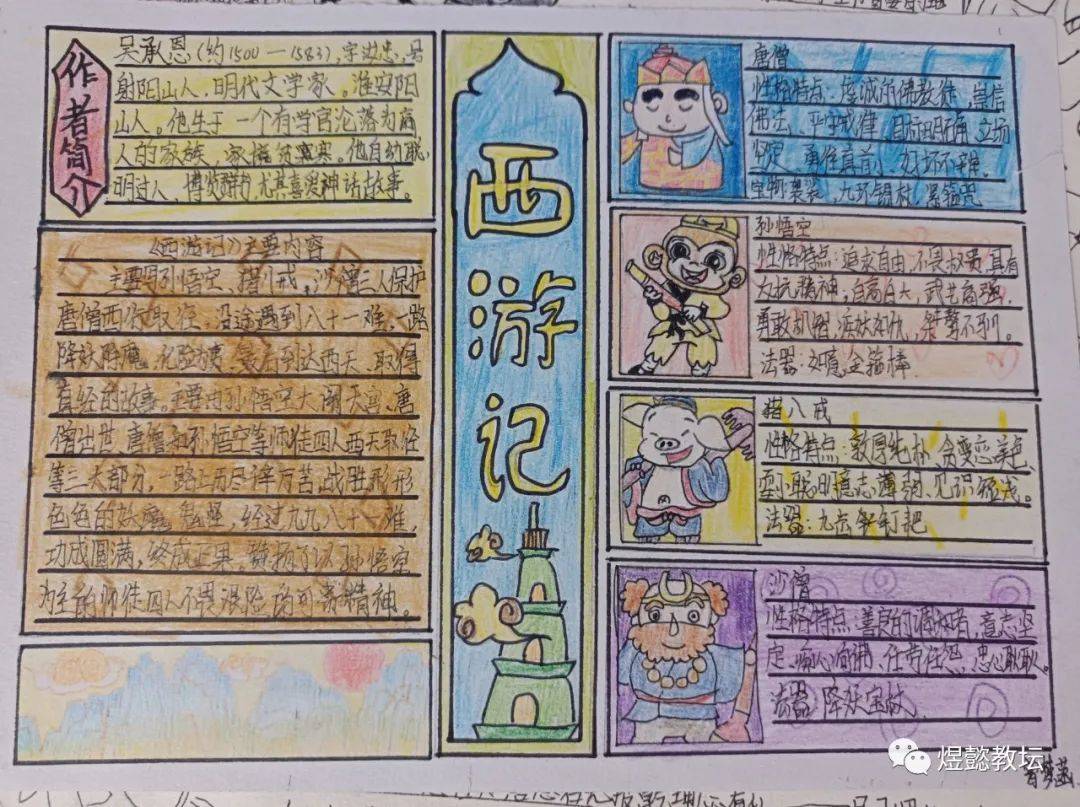 作者简介
吴承恩(约1500—1583),字汝忠,号
射阳山人,明代文学家。淮安阳
山人。他生于一个有学官沦落为商
人的家族,家境贫寒。他自幼聪
明过人,博览群书尤其喜爱神话故事。
《西游记》主要内容
主要写孙悟空、猪八戒,沙僧三人保护
唐僧西行取经,沿途遇到八十一难,一路
降妖除魔,化险为夷,最后到达西天,取得
真经的故事。主要由孙悟空大闹天宫、唐
僧出世、唐僧和孙悟空等师徒四人西天取经
等三大部分,一路历尽辛万苦战胜形形
色色的妖魔鬼怪,经过九九八十一难,
功成圆满,终成正果,
为主的师徒四人不畏艰险的可贵精神。
西游记
唐僧
性格特点:虔诚的佛教徒,崇信
佛法、严守戒律,目标明确,立场
坚定,勇往直前,好坏不辨。
宝物:袈裟,九环锡杖,紧箍咒
孙悟空
性格特点:追求自由,不畏权贵,具有
反抗精神,自高自大,武艺高强,
勇敢机智,疾妖如仇,桀骜不驯。
法器:如意金箍棒
猪八戒
性格特点:敦厚纯朴,贪变恋美色
耍小聪明,意志薄弱,见识短浅。
法器:九齿钉耙
沙僧
性格特点:善良的调和者,意志坚
定,痴心向佛、任劳任怨,忠心耿耿。
法器:降妖宝杖
煜懿教坛